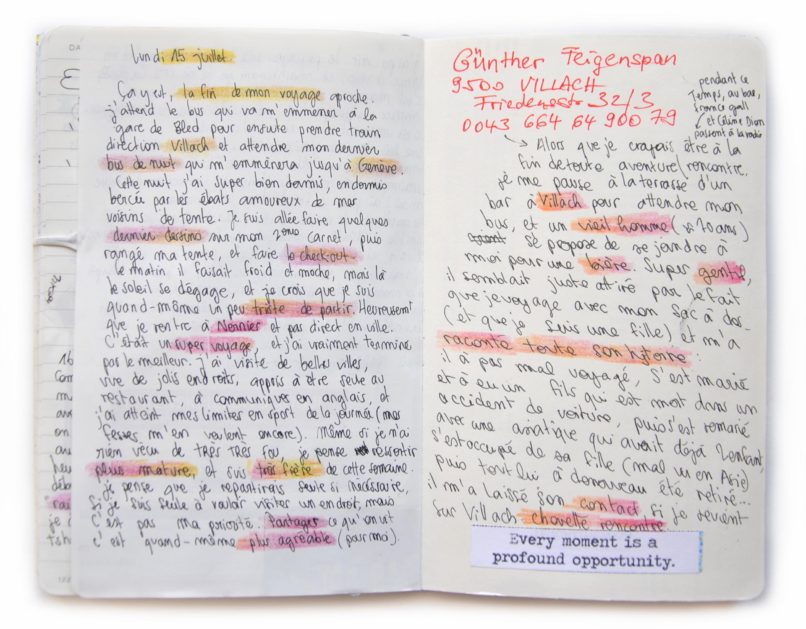 Lundi 15 juillet.
Ça y est, la fin de mon voyage aproche.
j'attend le bus qui va m'emmener à la
gare de Bled pour ensuite prendre train
direction Villach et attendre mon dernier
bus de nuit qui m'emmènera jusqu'à Genève.
Cette nuit j'ai super bien dormis, endormie
bercée par les ébats amoureux de mes
voisins de tente. Je suis allée faire quelques
dernier dessins sur mon 2ème carnet, puis
rangé ma tente, et faire le check-out.
le matin il faisait froid et moche, mais là
le soleil se dégage, et je crois que je suis
quand-même un peu triste de partir. Heureusement
que je rentre à Nernier et pas direct en ville.
C'était un super voyage, et j'ai vraiment terminé
par le meilleur. j'ai visité de belles villes,
vive de jolis endroits, appris à être seule au
restaurant, à communiquer en anglais, et
j'ai atteint mes limites en sport de la journée (mes
fesses m'en veulent encore). Même si je n'ai
rien vécu de TRÈS TRÈS fou, je pense ressentir
plus mature, et suis très fière de cette semaine.
je pense que je repartirais seule si nécessaire,
si je suis seule à vouloir visiter un endroit, mais
c'est pas ma priorité. Partager ce qu'on vit
c'est quand-même plus agréable (pour moi).
Günther Feigenspan
9500 VILLACH
Friedensstr 32/3
0043 664 64 900 79
pendant ce
temps, au bar,
france gall
et Céline Dion
passent à la radio
Alors que je croyais être à la
fin de toute aventure/rencontre,
je me pause à la terrasse d'un
bar à Villach pour attendre mon
bus, et un vieil homme (± 70 ans)
se propose de se joindre à
moi pour une bière. Super gentil,
il semblait juste attiré par le fait
que je voyage avec mon sac à dos
(et que je suis une fille) et m'a
raconté toute son histoire:
il a pas mal voyagé, s'est marié
et a eu un fils qui est mort dans un
accident de voiture, puis s'est remarié
avec une asiatique qui avait déjà 1 enfant,
s'est occupé de sa fille (mal vu en Asie)
puis tout lui a de nouveau été retiré...
il m'a laissé son contact si je revient
sur Villach. chouette rencontre
Every moment is a
profound opportunity.